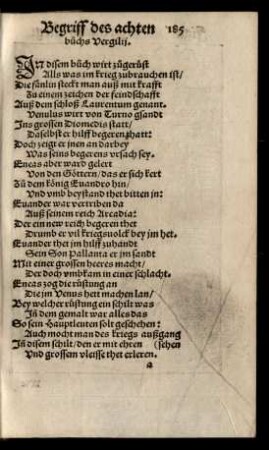 Begriff des achten 185
bůchs Vergilij.
IN disem bůch wirt zůgerüst
Alls was im krieg zubrauchen ist/
Die fänlin steckt man auß mit krafft
Zu einem zeichen der feindschafft
Auß dem schloß Laurentum genant.
Venulus wirt von Turno gsandt
Ins grossen Diomedis statt/
Daselbst er hilff begeren thatt:
Doch zeigt er jnen an darbey
Was seins begerens vrsach sey.
Eneas aber ward gelert
Von den Göttern/ das er sich kert
Zů dem könig Euandro hin/
Vnd vmb beystand thet bitten jn:
Euander war vertriben da
Auß seinem reich Arcadia:
Der ein new reich begeren thet
Drumb er vil kriegsuolck bey jm het.
Euander thet jm hilff zuhandt
Sein Son Pallanta er jm sandt
Mit einer grossen heeres macht/
Der doch vmbkam in einer schlacht.
Eneas zog die rüstung an
Die jm Venus hett machen lan/
Bey welcher rüstung ein schilt was
In dem gemalt war alles das
So sein Hauptleuten solt geschehen:
Auch mocht man des kriegs außgang
In disem schilt/ den er mit ehren (sehen
Vnd grossem vleisse thet erleren.
a